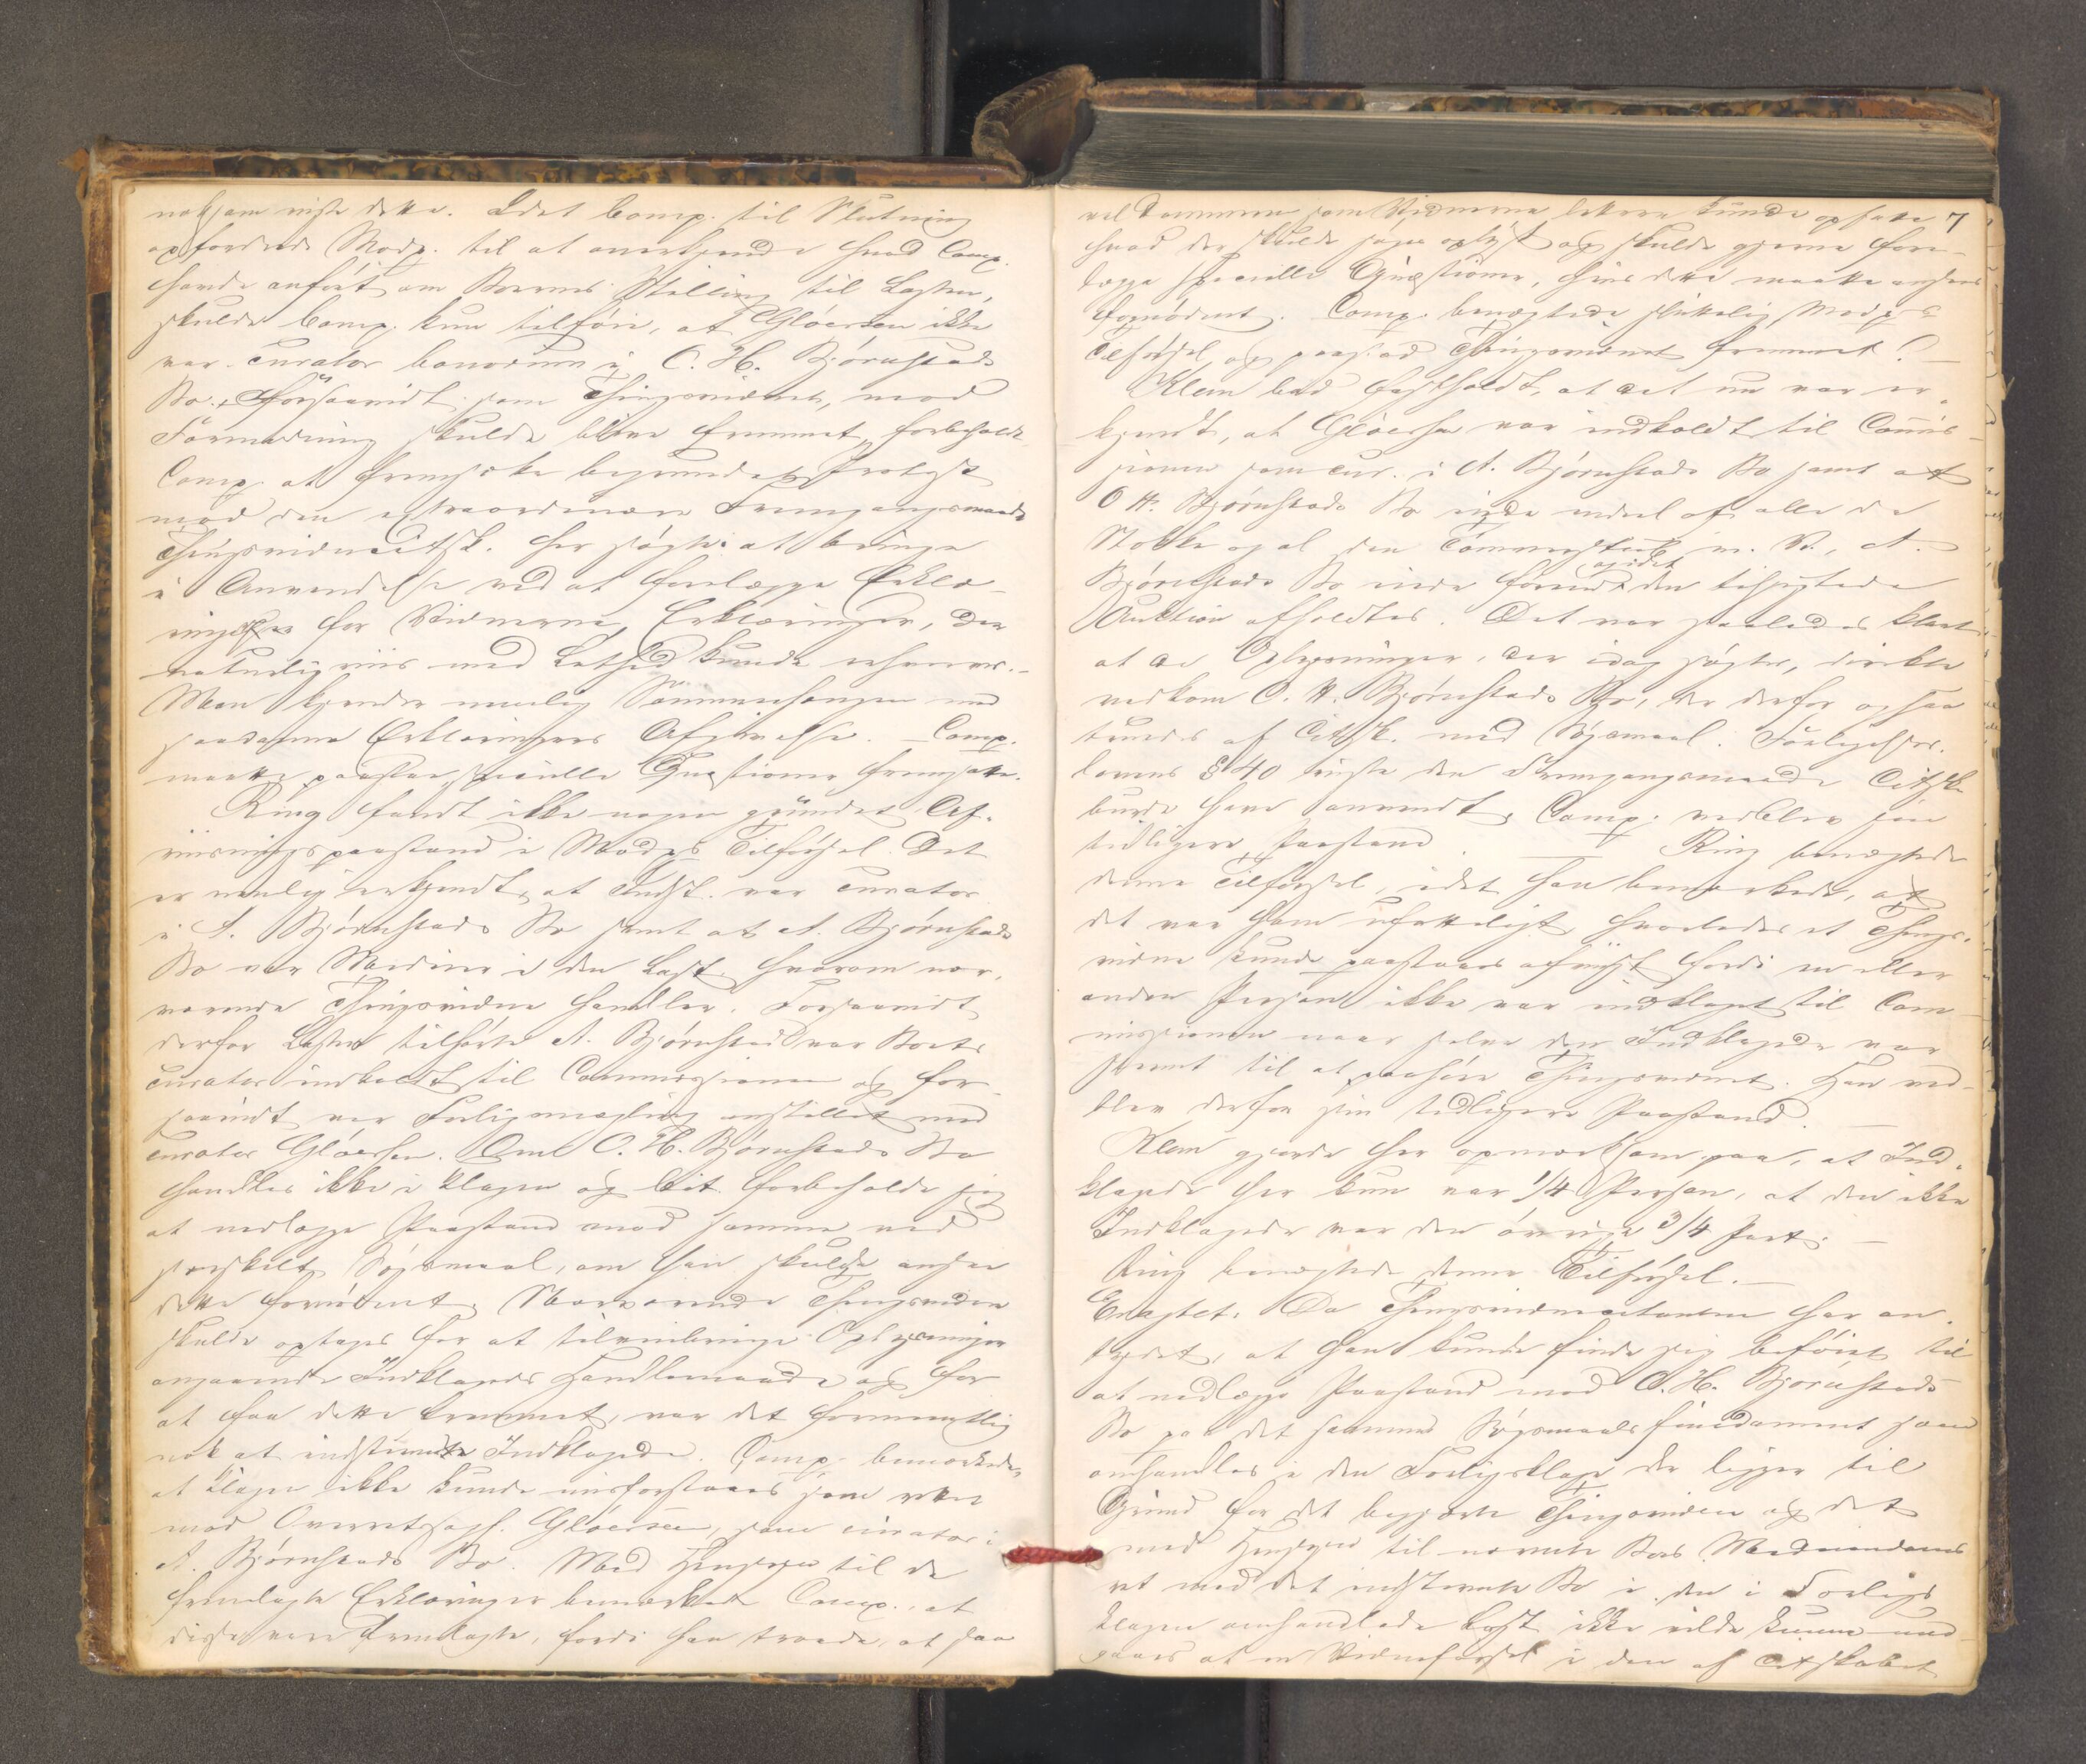 noksom viste dette. Idet Comp. til Slutning
opfordrede Modp. til at anerkjende hvad Comp.
havde anført om Boernes Stilling til Lasten,
skulde Comp. kun tilføie, at Gløersen ikke
var curator bonorum i O. H. Bjørnstads
Bo. Forsaavidt som Thingsvidnet, mod
Formodning skulde blive fremmet, forbeholdt
Comp. at fremsætte begrundet Protest
mod den extraordinære Fremgangsmaade
Thingsvidnecitsk. her søgte at bringe
i Anvendelse ved at forelægge Erklæ-
ringer for Vidnerne, Erklæringer, der
naturligviis med Lethed kunde erhverves.-
Man kjender nemlig Sammenhængen med
saadanne Erklæringers Afgivelse. - Comp.
maatte paastaa specielle Qvæstioner fremsatte.
Ring fandt ikke nogen grundet Af-
viisningspaastand i Modps Tilførsel. Det
er nemlig erkjendt, at Indst. var curator
i A. Bjørnstads Bo samt at A. Bjørnstads
Bo var Medeier i den Last, hvorom nær-
værende Thingsvidne handler. Forsaavidt
derfor Lasten tilhørte A. Bjørnstad var Boets
curator indkaldt til Commissionen og for-
saavidt var Forligsmægling anstillet med
curator Gløersen. Om O. H. Bjørnstads Bo
handles ikke i Klagen og Cit. forbeholdt sig
at nedlægge Paastand mod samme ved
særskilt Søgsmaal, om han skulde ansee
dette fornødent. Nærværende Thingsvidne
skulde optages for at tilveiebringe Oplysninger
angaaende Indklagedes Handlemaade og for
at faa dette fremmet, var det formentlig
nok at indstævne Indklagede. Comp. bemærkede,
at Klagen ikke kunde misforstaaes som rettet
mod Overretssagf. Gløersen, som curator i
A. Bjørnstads Bo. Med Hensyn til de
fremlagte Erklæringer bemærkede Comp., at
disse vare fremlagte, fordi han troede, at saa
7
vel Dommeren som Vidnerne lettere kunde opfatte
hvad der skulde søges oplyst og skulde gjerne fore-
lægge specielle Qvæstioner, hvis dette maatte ansees
fornødent. Comp. benægtede stykkelig Modp.s
Tilførsel, og paastod Thingsvidnet fremmet. -
Klem bad fastholdt, at det nu var er-
kjendt, at Gløersen var indkaldt til Commis-
sionen som cur. i A. Bjørnstads Bo samt at
O. H. Bjørnstads Bo eiede endeel af alle de
Stokke og al den Tømmerstok m. V., A.
Bjørnstads Bo eiede forend og idet den tilsigtede
Auktion afholdtes. Det var saaledes klart
at de Oplysninger, der idag søgtes, direkte
vedkom O. H. Bjørnstads Bo, der derfor ogsaa
truedes af Citsk. med Søgsmaal. Forligelses-
lovens § 40 viste den Fremgangsmaade Citsk.
burde have anvendt. Comp. vedblev sin
tidligere Paastand. - Ring benægtede
denne Tilførsel, idet han bemærkede, at
det var ham ufatteligt, hvorledes et Things-
vidne kunde paastaaes afviist fordi en eller
anden Person ikke var indklaget til Com-
missionen naar selve den Indklagede var
stevnt til at paahøre Thingsvidnet. Han ved-
blev derfor sin tidligere Paastand. -
Klem gjorde her opmærksom paa, at Ind-
klagede her kun var 1/4 Person, at den ikke
Indklagede var den øvrige 3/4 Part. -
Ring benægtede denne Tilførsel. -
Eragtet: Da Thingsvidnecitanten har an-
tydet, at han kunde finde sig beføiet til
at nedlægge Paastand mod O. H. Bjørnstads
Bo paa det samme Søgsmaalsfundament som
omhandles i den Forligsklage der ligger til
Grund for det begjærte Thingsvidne og det
med Hensyn til nævnte Boes Medeiendoms-
ret med det indstevnte Bo i den i Forligs-
klagen omhandlede Last ikke vilde kunne und-
gaaes at en Vidneførsel i den af Citskabet